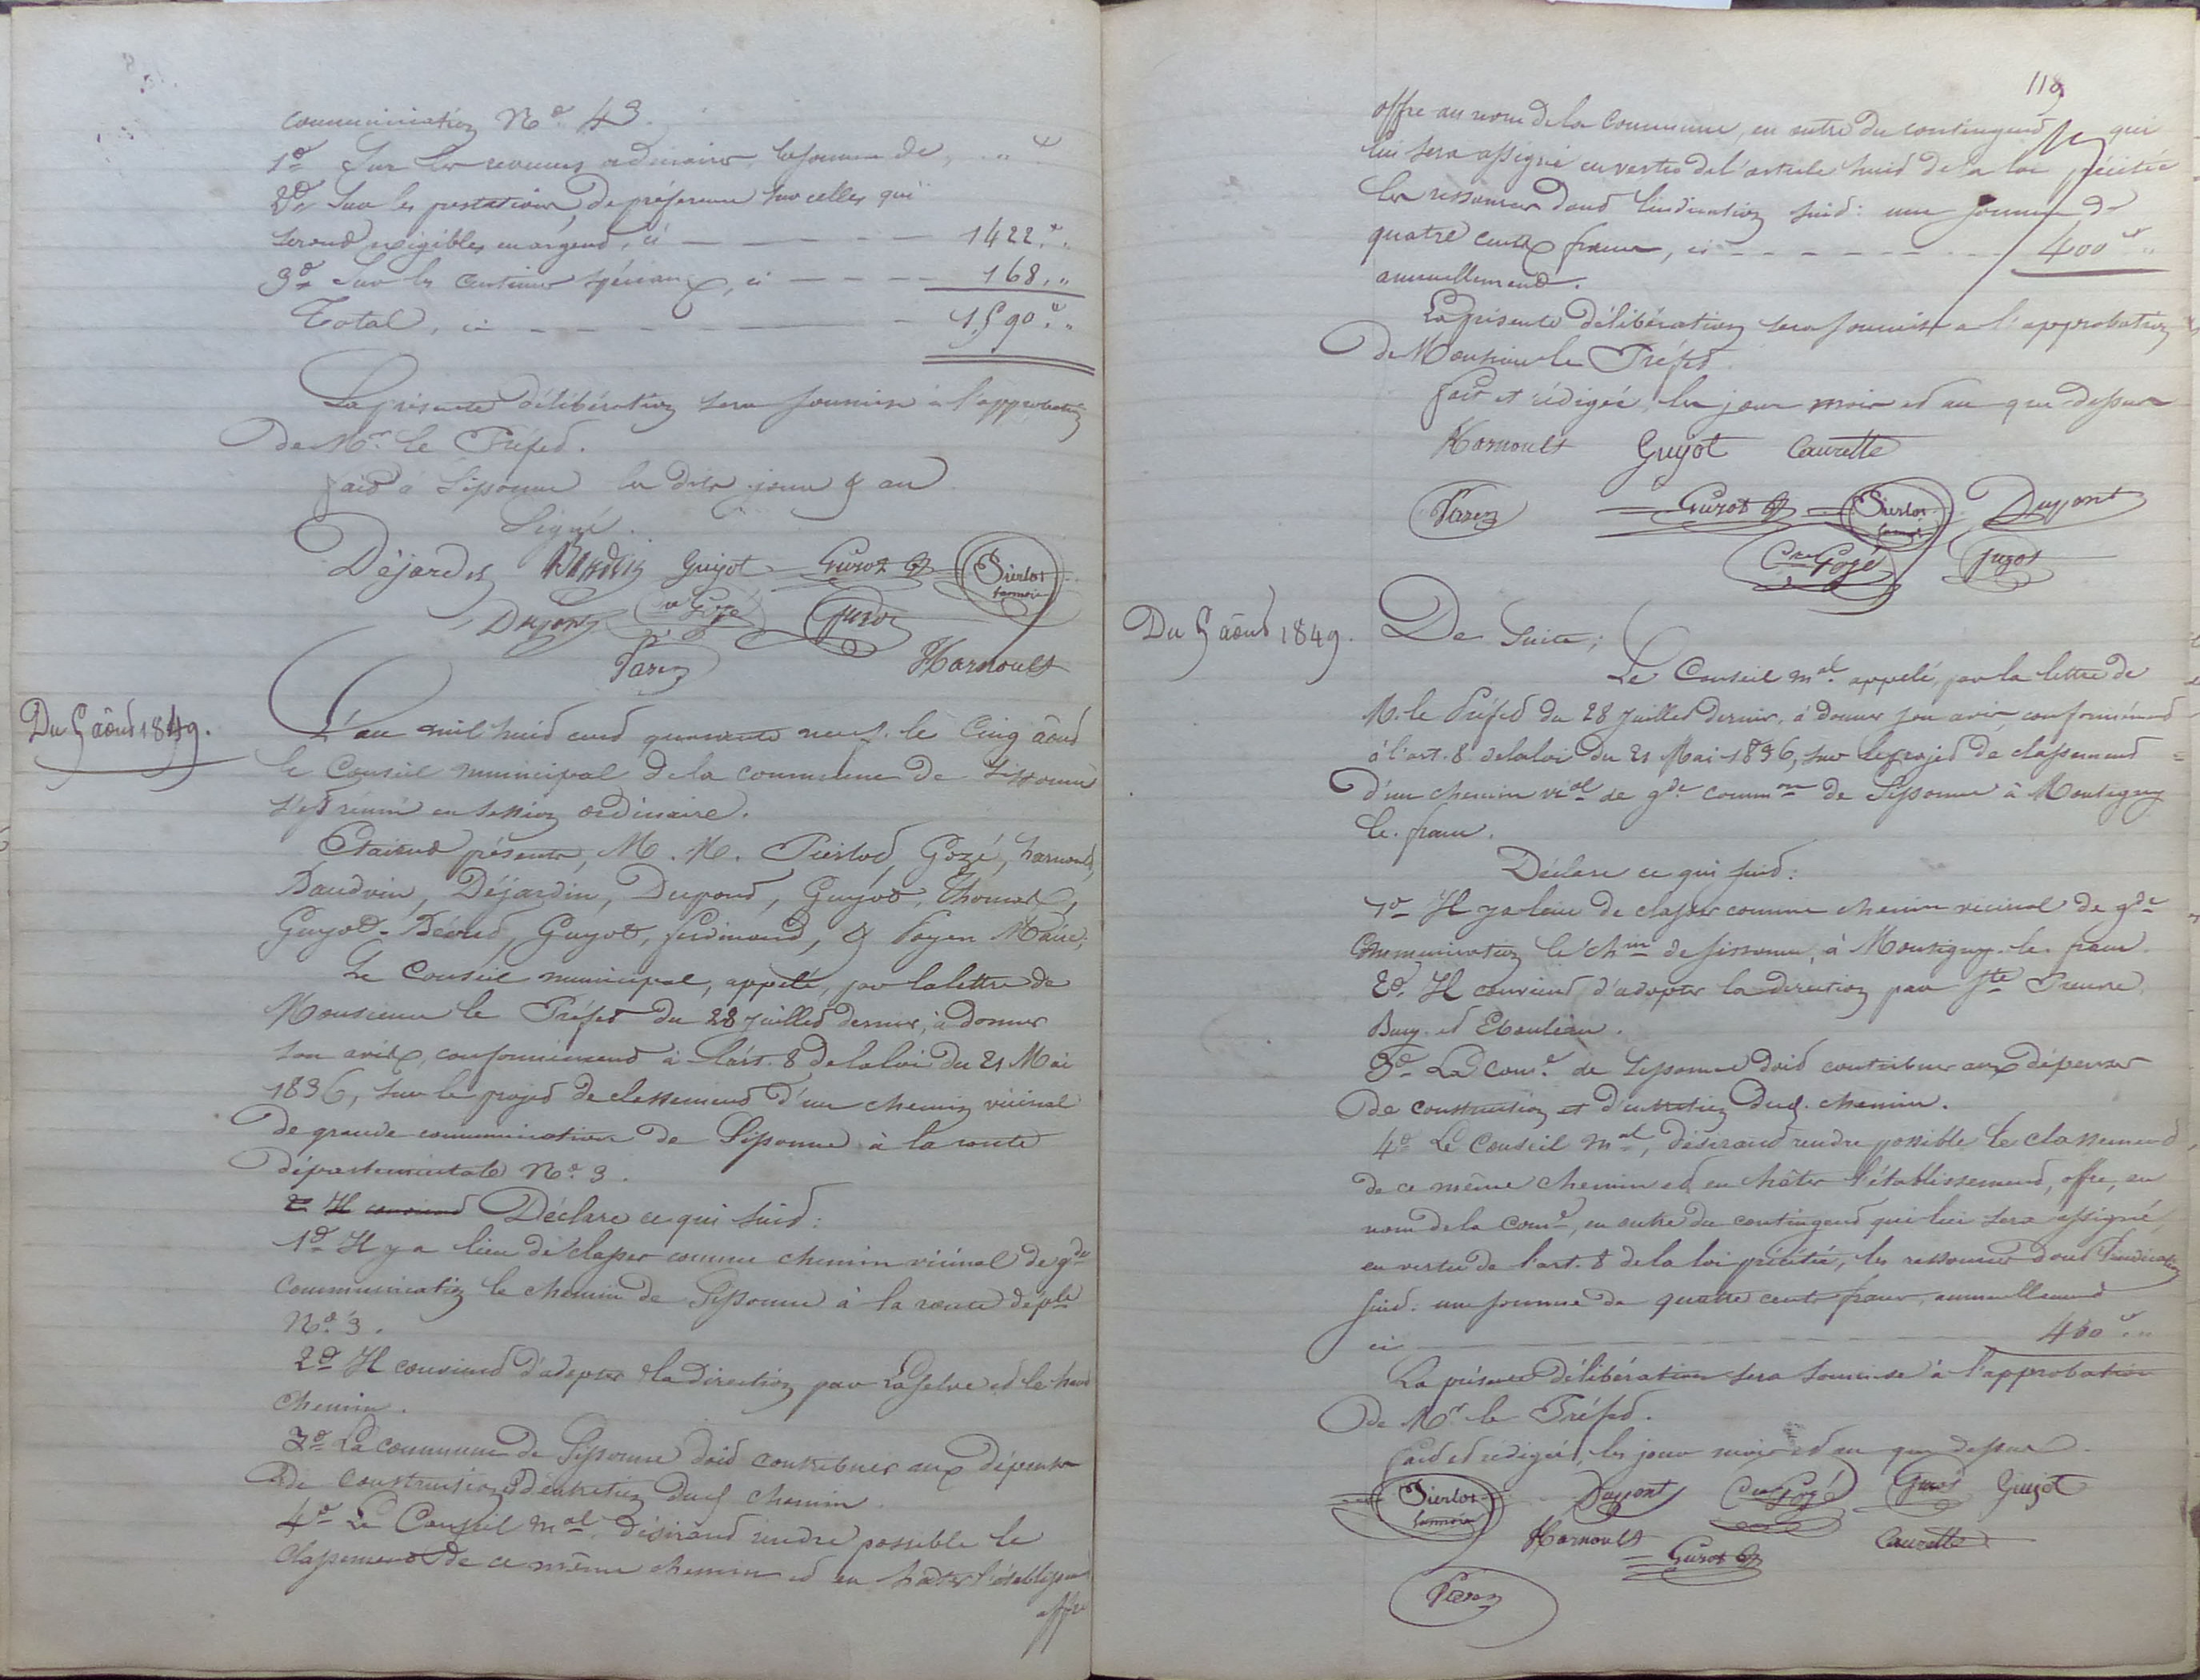 communication N° 43.
1° Sur les revenus ordinaires la somme de " "
2° Sur les prestations, de préférence sur celles qui
seront exigibles en argent, ci — 1422. "
3° Sur les centimes spéciaux, ci — 168, "
Total, ci — 1,590. "
La présente délibération sera soumise à l'approbation
de Mr. le Préfet.
fait à Sissonne les dits jour & an
Signé.
Déjardin Guyot Guyot Pierlot
Dupont Gozé Guyot
Payen Harnoult
Du 5 août 1849.
L'an mil huit cent quarante neuf. le Cinq août
le Conseil municipal de la commune de Sissonne
s'est réuni en session ordinaire.
Etaient présents, M. M. Pierlot, Gozé, harnoult,
Baudoin, Déjardin, Dupont, Guyot, Thomas,
Guyot, Guyot, ferdinand, & Payen Maire;
Le Conseil municipal, appelé, par la lettre de
Monsieur le Préfet du 28 Juillet dernier, à donner
son avis, conformément à l'art. 8 de la loi du 21 Mai
1836, sur le projet de classement d'un chemin vicinal
de grande communication de Sissonne à la route
départementale N° 3.
2° Il convient Déclare ce qui suit:
1° Il y a lieu de classer comme chemin vicinal de gde
communication le chemin de Sissonne à la route déple
N° 3.
2° Il convient d'adopter la direction par Laselve et le haut
chemin.
3° La commune de Sissonne doit contribuer aux dépenses
de construction & d'entretien dud chemin.
4° Le Conseil mal, désirant rendre possible le
classement de ce même chemin et en hâter l'établissemt
offre
119
offre au nom de la Commune, en outre du contingent qui
lui sera assigné en vertu de l'article huit de la loi précitée
les ressources dont l'indication suit: une somme de
quatre cents francs, ci — 400 "
annuellement.
La présente délibération sera soumise à l'approbation
de Monsieur le Préfet.
fait et rédigée, les jour mois et an que dessus
Harnoult Guyot Caurette
Payen Guyot Pierlot Dupont
Gozé Guyot
Du 5 août 1849.
De Suite;
Le Conseil mal. appelé, par la lettre de
M. le Préfet du 28 Juillet dernier, à donner son avis conformément
à l'art. 8 de la loi du 21 Mai 1836, sur le projet de classement
d'un chemin vial de gde common de Sissonne à Montigny
le. franc.
Déclare ce qui suit:
1° Il y a lieu de classer comme chemin vicinal de gde
Communication le chin de sissonne, à Montigny. le. franc.
2° Il convient d'adopter la direction par Ste Preuve
Bucy. et Ebouleau.
3° La come. de Sissonne doit contribuer aux dépenses
de construction et d'entretien dud. chemin.
4° Le Conseil mal, désirant rendre possible le classement
de ce même chemin et en hâter l'établissement, offre, au
nom de la come, en outre du contingent qui lui sera assigné
en vertu de l'art. 8 de la loi précitée, les ressources dont l'indication
suit: une somme de quatre cents francs, annuellement
ci — 400 "
La présente délibération sera soumise à l'approbation
de Mr le Préfet.
fait et rédigée, les jour mois et an que dessus.
Pierlot Dupont Gozé Guyot Guyot
Harnoult Guyot Caurette
Payen